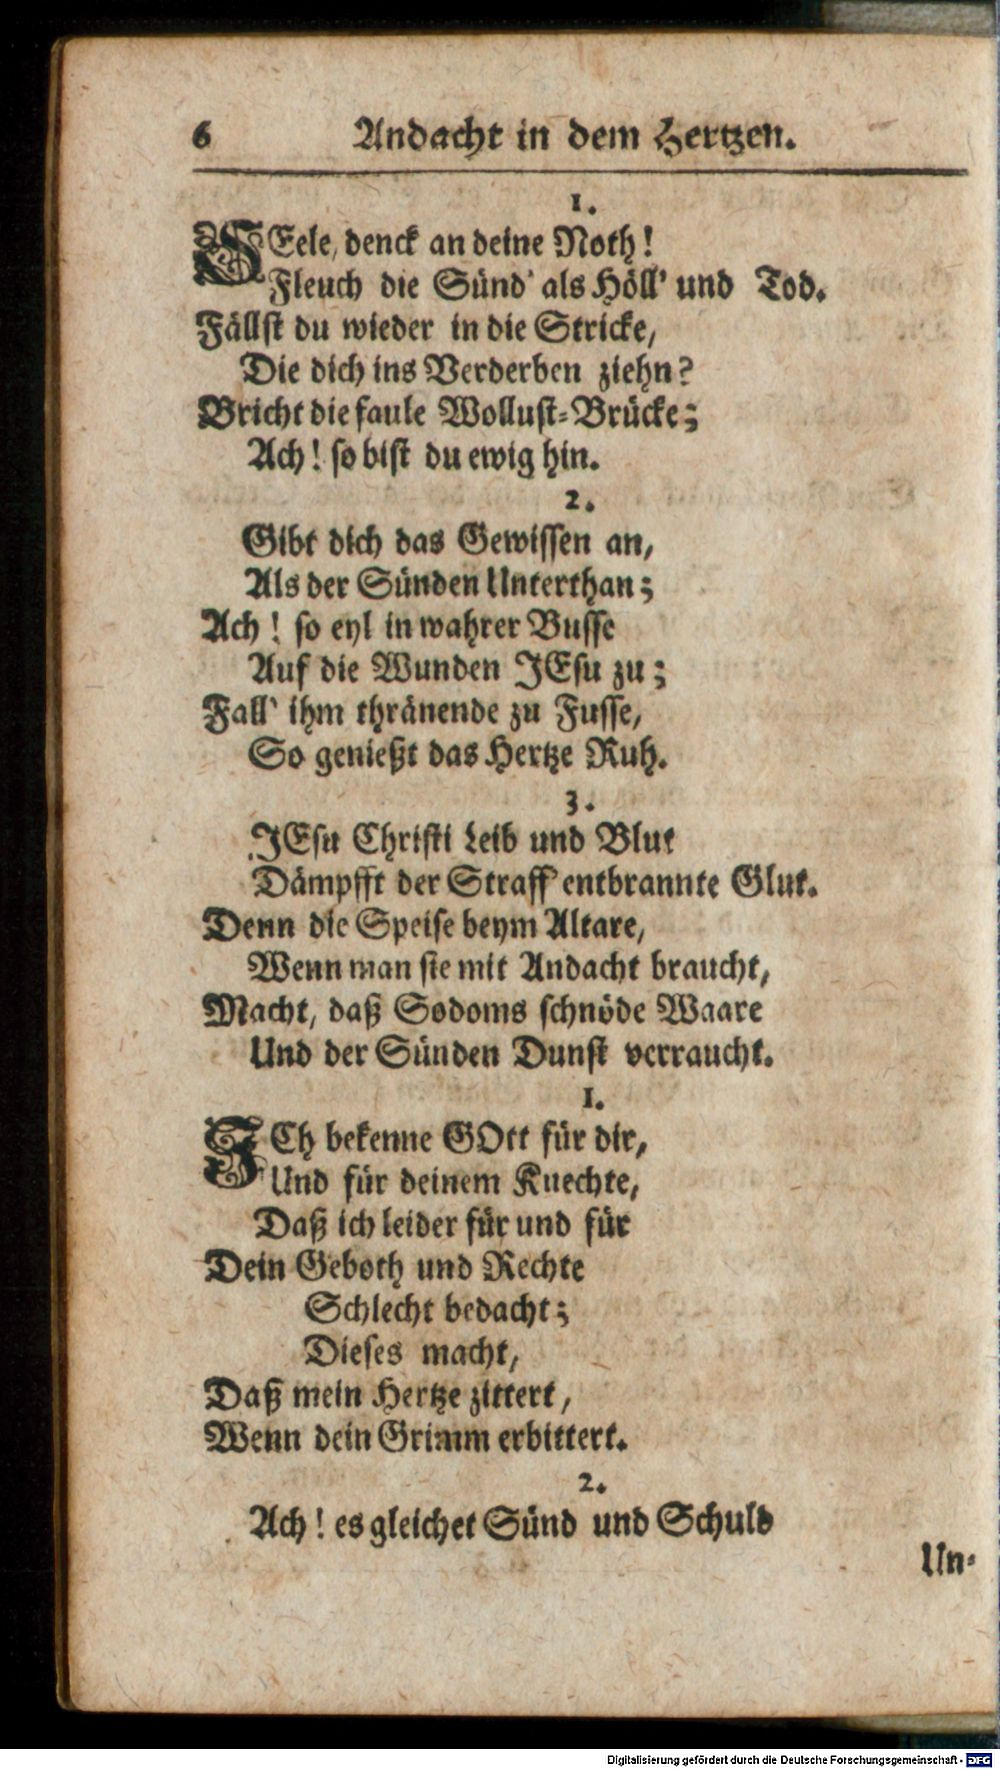 6 Andacht in dem Hertzen.
1.
SEele, denck an deine Noth!
Fleuch die Sünd' als Höll' und Tod.
Fällst du wieder in die Stricke,
Die dich ins Verderben ziehn?
Bricht die faule Wollust-Brücke;
Ach! so bist du ewig hin.
2.
Gibt dich das Gewissen an,
Als der Sünden Unterthan;
Ach! so eyl in wahrer Busse
Auf die Wunden JEsu zu;
Fall' ihm thränende zu Fusse,
So genießt das Hertze Ruh.
3.
JEsu Christi Leib und Blut
Dämpfft der Straff' entbrannte Glut.
Denn die Speise beym Altare,
Wenn man sie mit Andacht braucht,
Macht, daß Sodoms schnöde Waare
Und der Sünden Dunst verraucht.
1.
JCh bekenne GOtt für dir,
Und für deinem Knechte,
Daß ich leider für und für
Dein Geboth und Rechte
Schlecht bedacht;
Dieses macht,
Daß mein Hertze zittert,
Wenn dein Grimm erbittert.
2.
Ach! es gleichet Sünd und Schuld
Un-
Digitalisierung gefördert durch die Deutsche Forschungsgemeinschaft - DFG